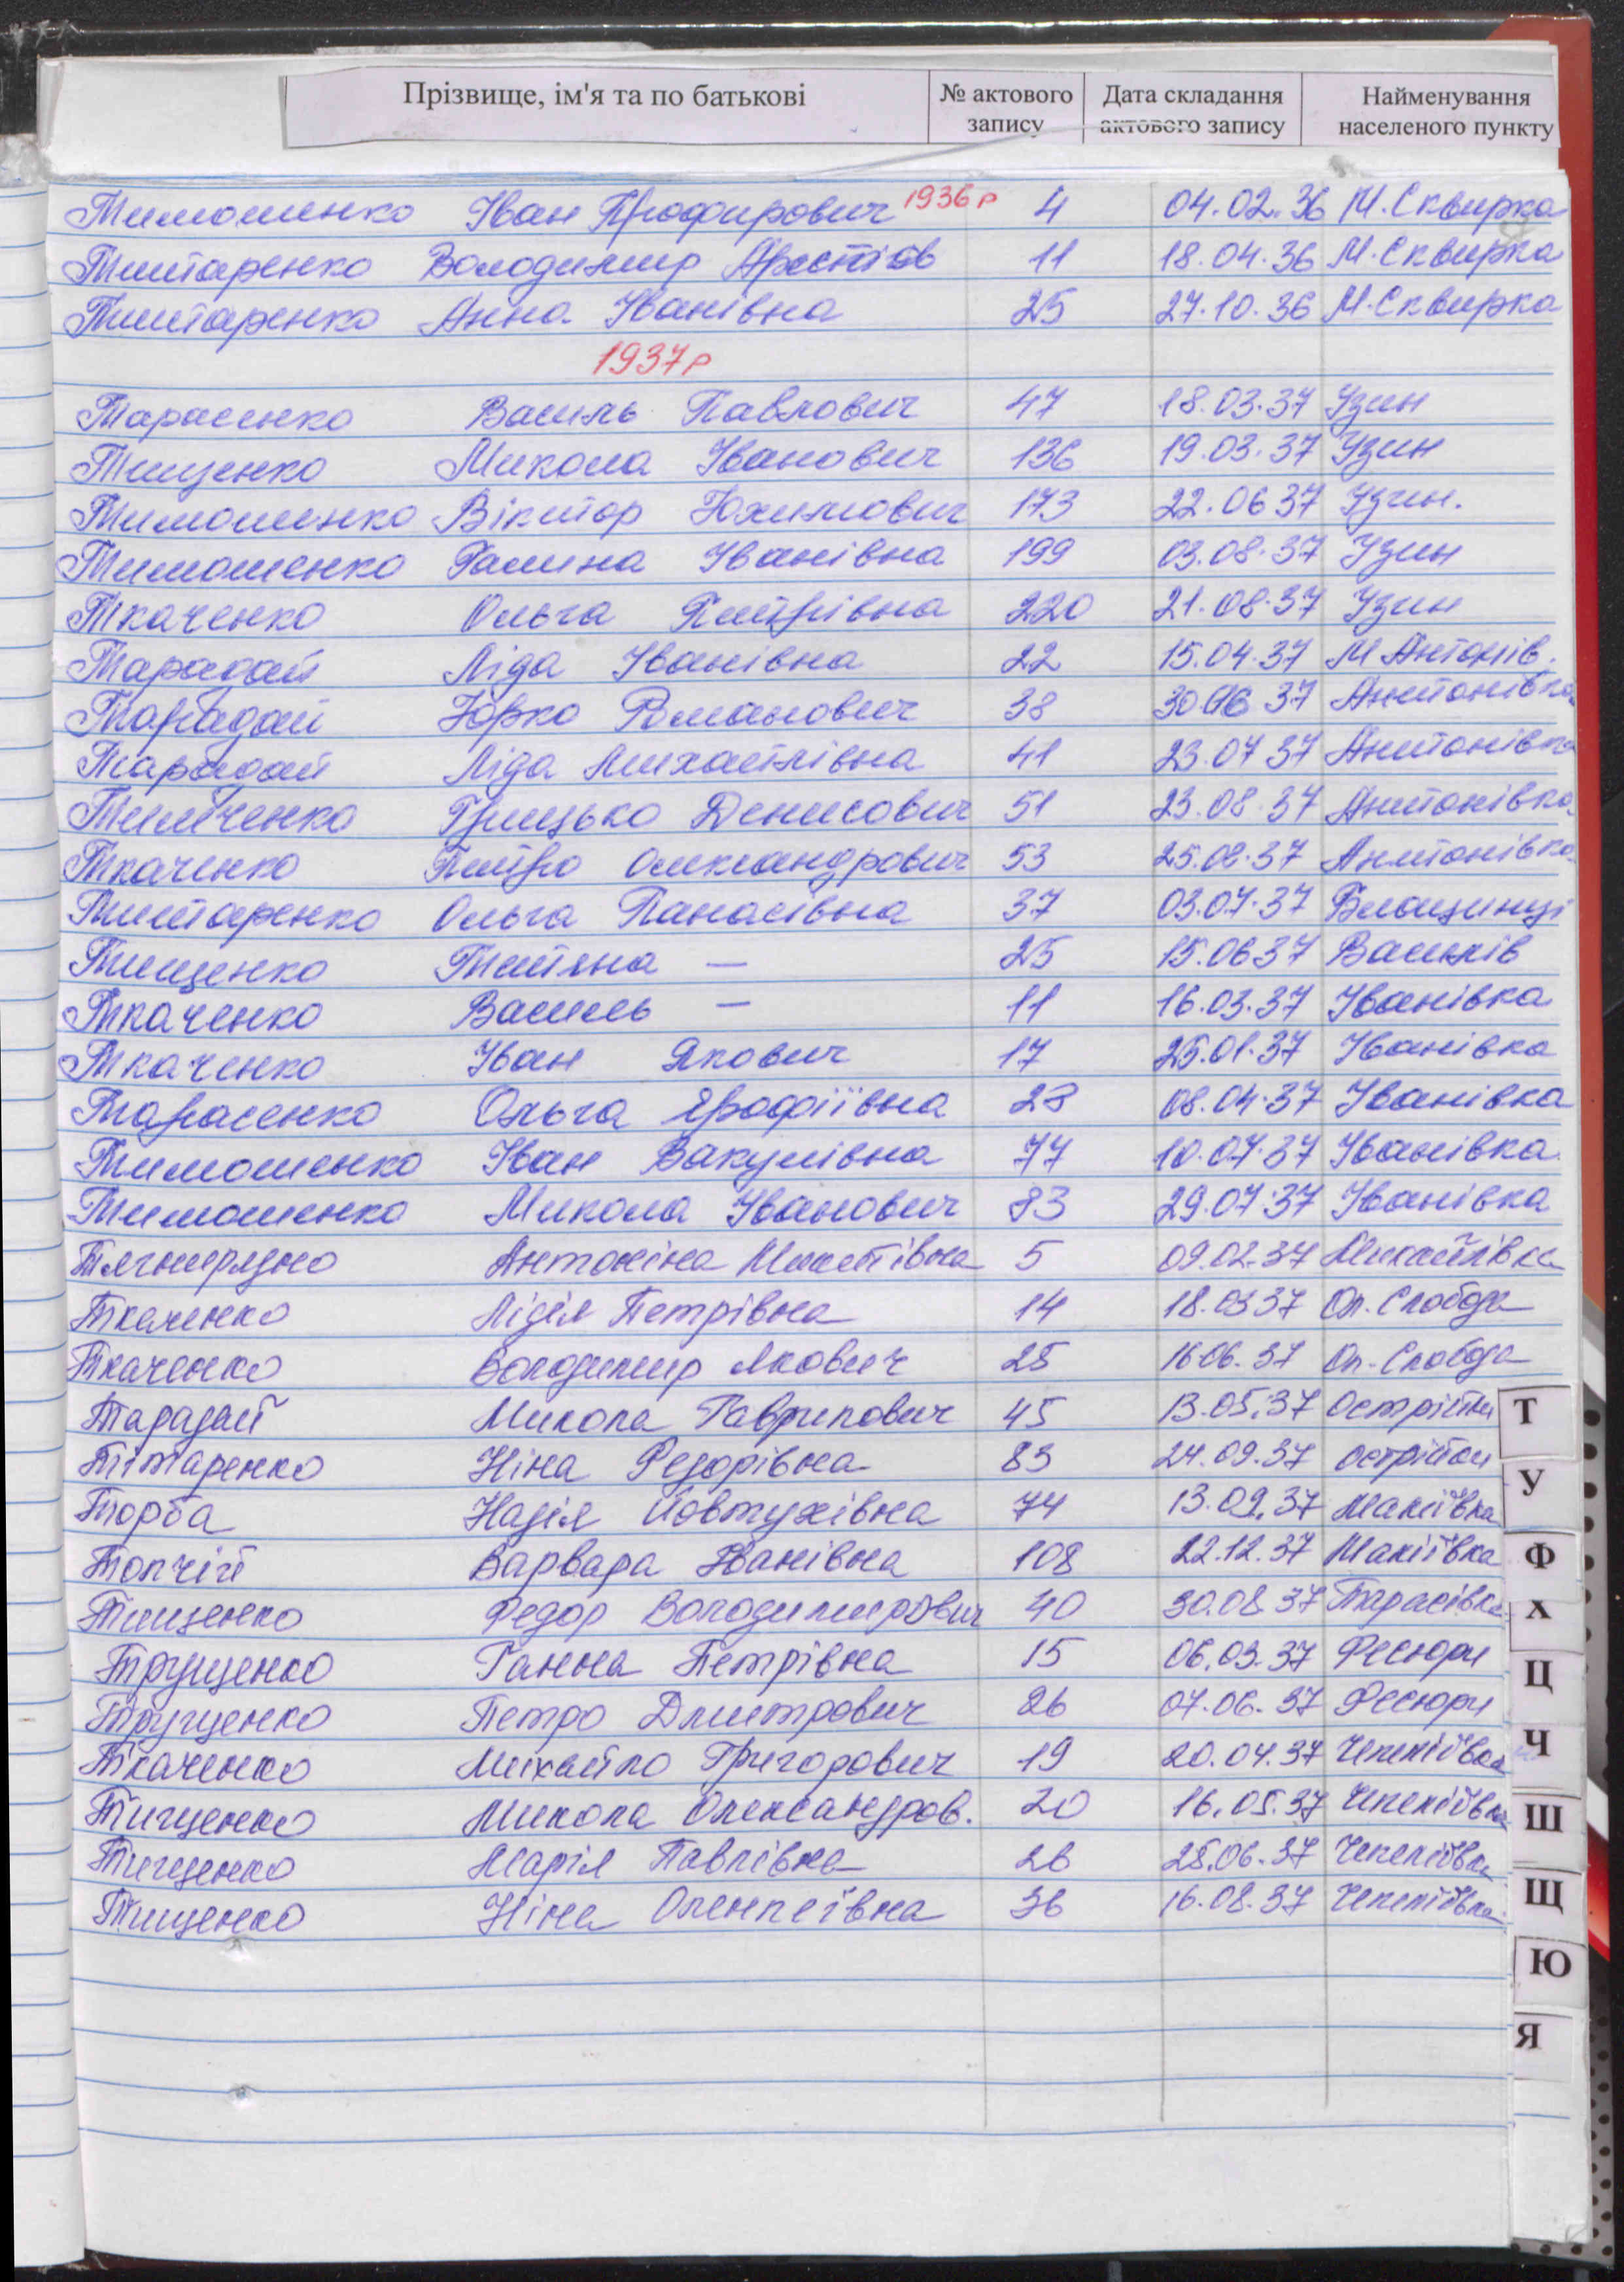 Прізвище, ім'я та по батькові № актового запису Дата складання актового запису Найменування населеного пункту
Тимошенко Іван Профирович 1936 р 4 04.02.36 М.Сквирка
Титаренко Володимир 11 18.04.36 М.Сквирка
Титаренко Анна Іванівна 25 27.10.36 М.Сквирка
1937р
Тарасенко Василь Павлович 47 18.03.37 Узин
Тищенко Микола Іванович 136 19.03.37 Узин
Тимошенко Віктор Юхимович 173 22.06 37 Узин.
Тимошенко Галина Іванівна 199 03.08.37 Узин
Ткаченко Ольга Петрівна 220 21.08.37 Узин
Тарадай Ліда Іванівна 22 15.04.37 М Антонів.
Тарадай Юрко Романович 38 37 Антонівка
Тарадай Ліда Михайлівна 41 23.07 37 Антонівка
Тимченко Грицько Денисович 51 23.08.37 Антонівка
Ткаченко Петро Олександрович 53 25.08.37 Антонівка
Титаренко Ольга Панасівна 37 03.07.37 Блощинці
Тищенко Тетяна — 25 15.06 37 Василів
Ткаченко Василь — 11 16.03.37 Іванівка
Ткаченко Іван Якович 17 25.01.37 Іванівка
Тарасенко Ольга Єрофіївна 23 08.04.37 Іванівка
Тимошенко Іван Вакулівна 77 10.07.37 Іванівка
Тимошенко Микола Іванович 83 29.07.37 Іванівка
Тягнирядно Антоніна 5 09.02.37 Михайлівка
Ткаченко Лідія Петрівна 14 18.03 37 Ол. Слобода
Ткаченко Володимир Якович 25 16 06. 37 Ол. Слобода
Тарадай Микола Гаврилович 45 13.05.37 Острійки
Тітаренко Ніна Федорівна 83 24.09.37 Острійки
Торба Надія Йовтухівна 74 13.09.37 Макіївка
Топчій Варвара Іванівна 108 22.12.37 Макіївка
Тищенко Федор Володимирович 40 30.08.37 Тарасівка
Трущенко Ганна Петрівна 15 06.03.37 Фесюри
Трущенко Петро Дмитрович 26 07.06.37 Фесюри
Ткаченко Михайло Григорович 19 20.04.37 Чепеліївка
Тищенко Микола Олександров. 20 16.05.37 Чепеліївка
Тищенко Марія Павлівна 26 25.06.37 Чепеліївка
Тищенко Ніна 36 16.08.37 Чепеліївка
Т
У
Ф
Х
Ц
Ч
Ш
Щ
Ю
Я